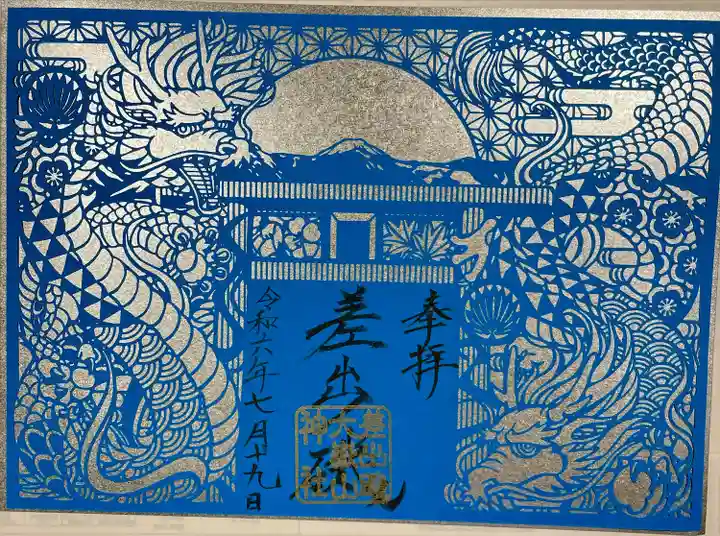 奉拝
差出磯
令和六年七月十九日
差出磯
大嶽山
神社